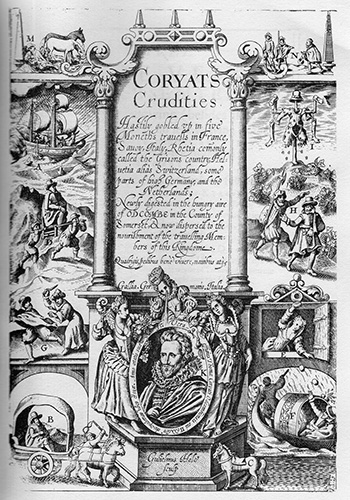 M
CORYATS
Crudities
Hastilie gobled up in five
Moneths travells in France,
Savoy, Italy, Rhetia comonly
called the Grisons country, Hel=
vetia aliàs Switzerland, some
parts of high Germany, and the
Netherlands;
Newly digested in the hungry aire
of ODCOMBE in the County of
Somerset, & now dispersed to the
nourishment of the travelling Mem=
bers of this Kingdome.
Quadrigis, pedibus bene vivere, navibus atq
Gallia. Ger mania. Italia.
H
G
B
Gulielmus Hole
sculp